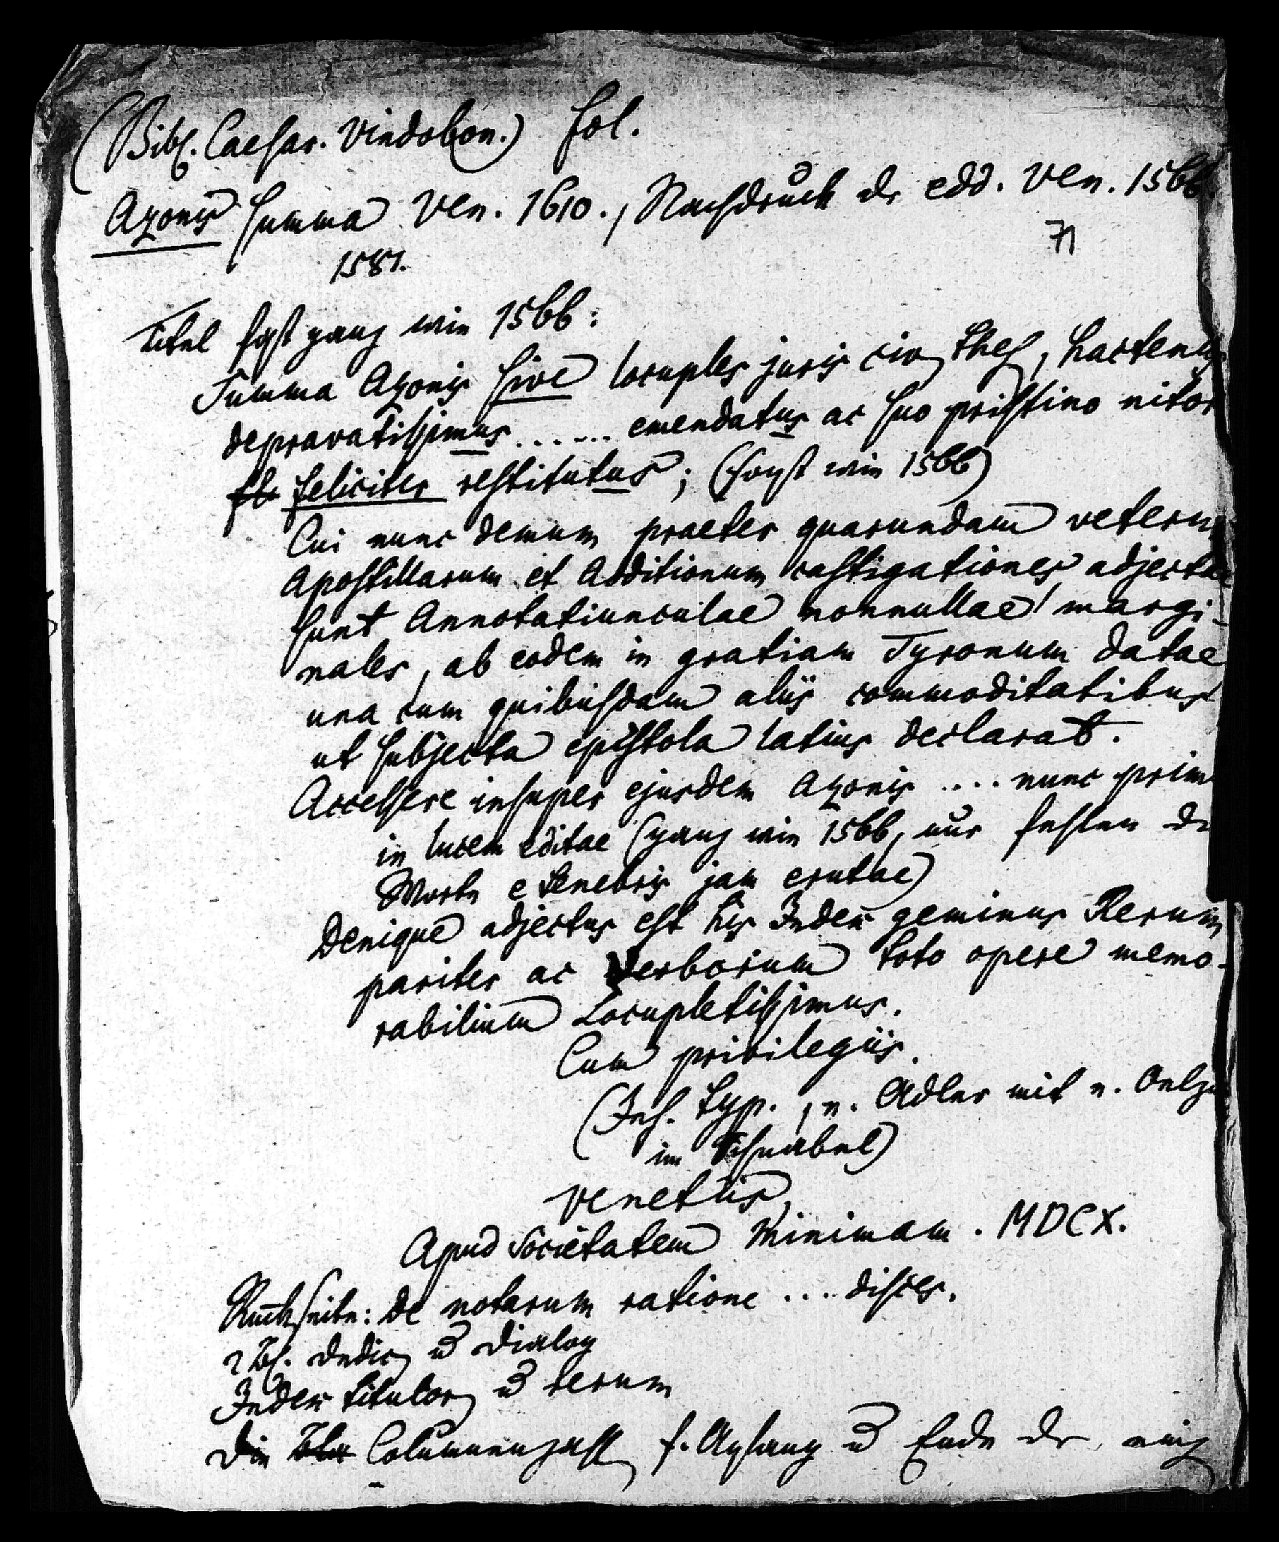 (Bibl. Caesar. Vindobon.) fol.
Azonis Summa Ven. 1610., Nachdruck der edd. Ven. 1566.
71
1581.
Titel fast ganz wie 1566:
Summa Azonis sive locuples juris civ thes, hactenus
depravatissimus ...... emendatus ac suo pristino nitor
feliciter restitutus; (sonst wie 1566)
Cui nunc demum praeter quarundam veterum
Apostillarum et Additionum castigationes adjectae
sunt Annotatiunculae nonnullae margi-
nales, ab eodem in gratiam Tyronum datae
una cum quibusdam aliis commoditatibus
ut subjecta epistola latius declarat.
Accessere insuper ejusdem Azonis .... nunc prim
in lucem editae (ganz wie 1566, nur fehlen di
Worte e tenebris jam erutae)
Denique adjectus est his Index geminus Rerum
pariter ac Verborum toto opere memo-
rabilium Locupletissimus.
Cum privilegiis.
(Ins. typ., e. Adler mit e. Oelzw
im Schnabel)
Venetiis,
Apud Societatem Minimam. MDCX.
Rückseite: De notarum ratione .... disces.
2 Bl. Dedic u Dialog
Index titulor u rerum
Die Columnenzahl s. Anfang u Ende der